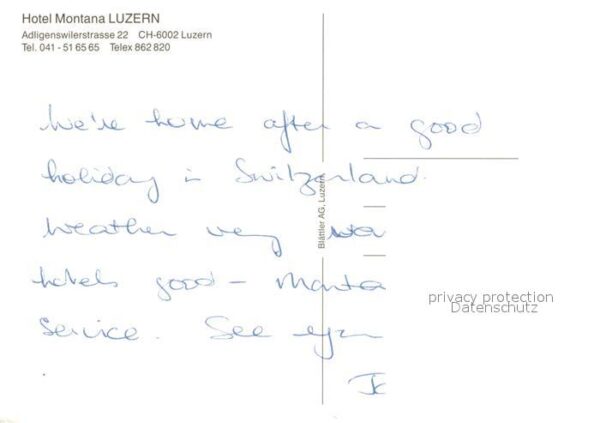 Hotel Montana LUZERN
Adligenswilerstrasse 22 CH-6002 Luzern
Tel. 041 - 51 65 65 Telex 862 820
We're home after a good
holiday in Switzerland.
Weather very wa
hotels good - Monta
Service. See
Blättler AG, Luzern
privacy protection
Datenschutz